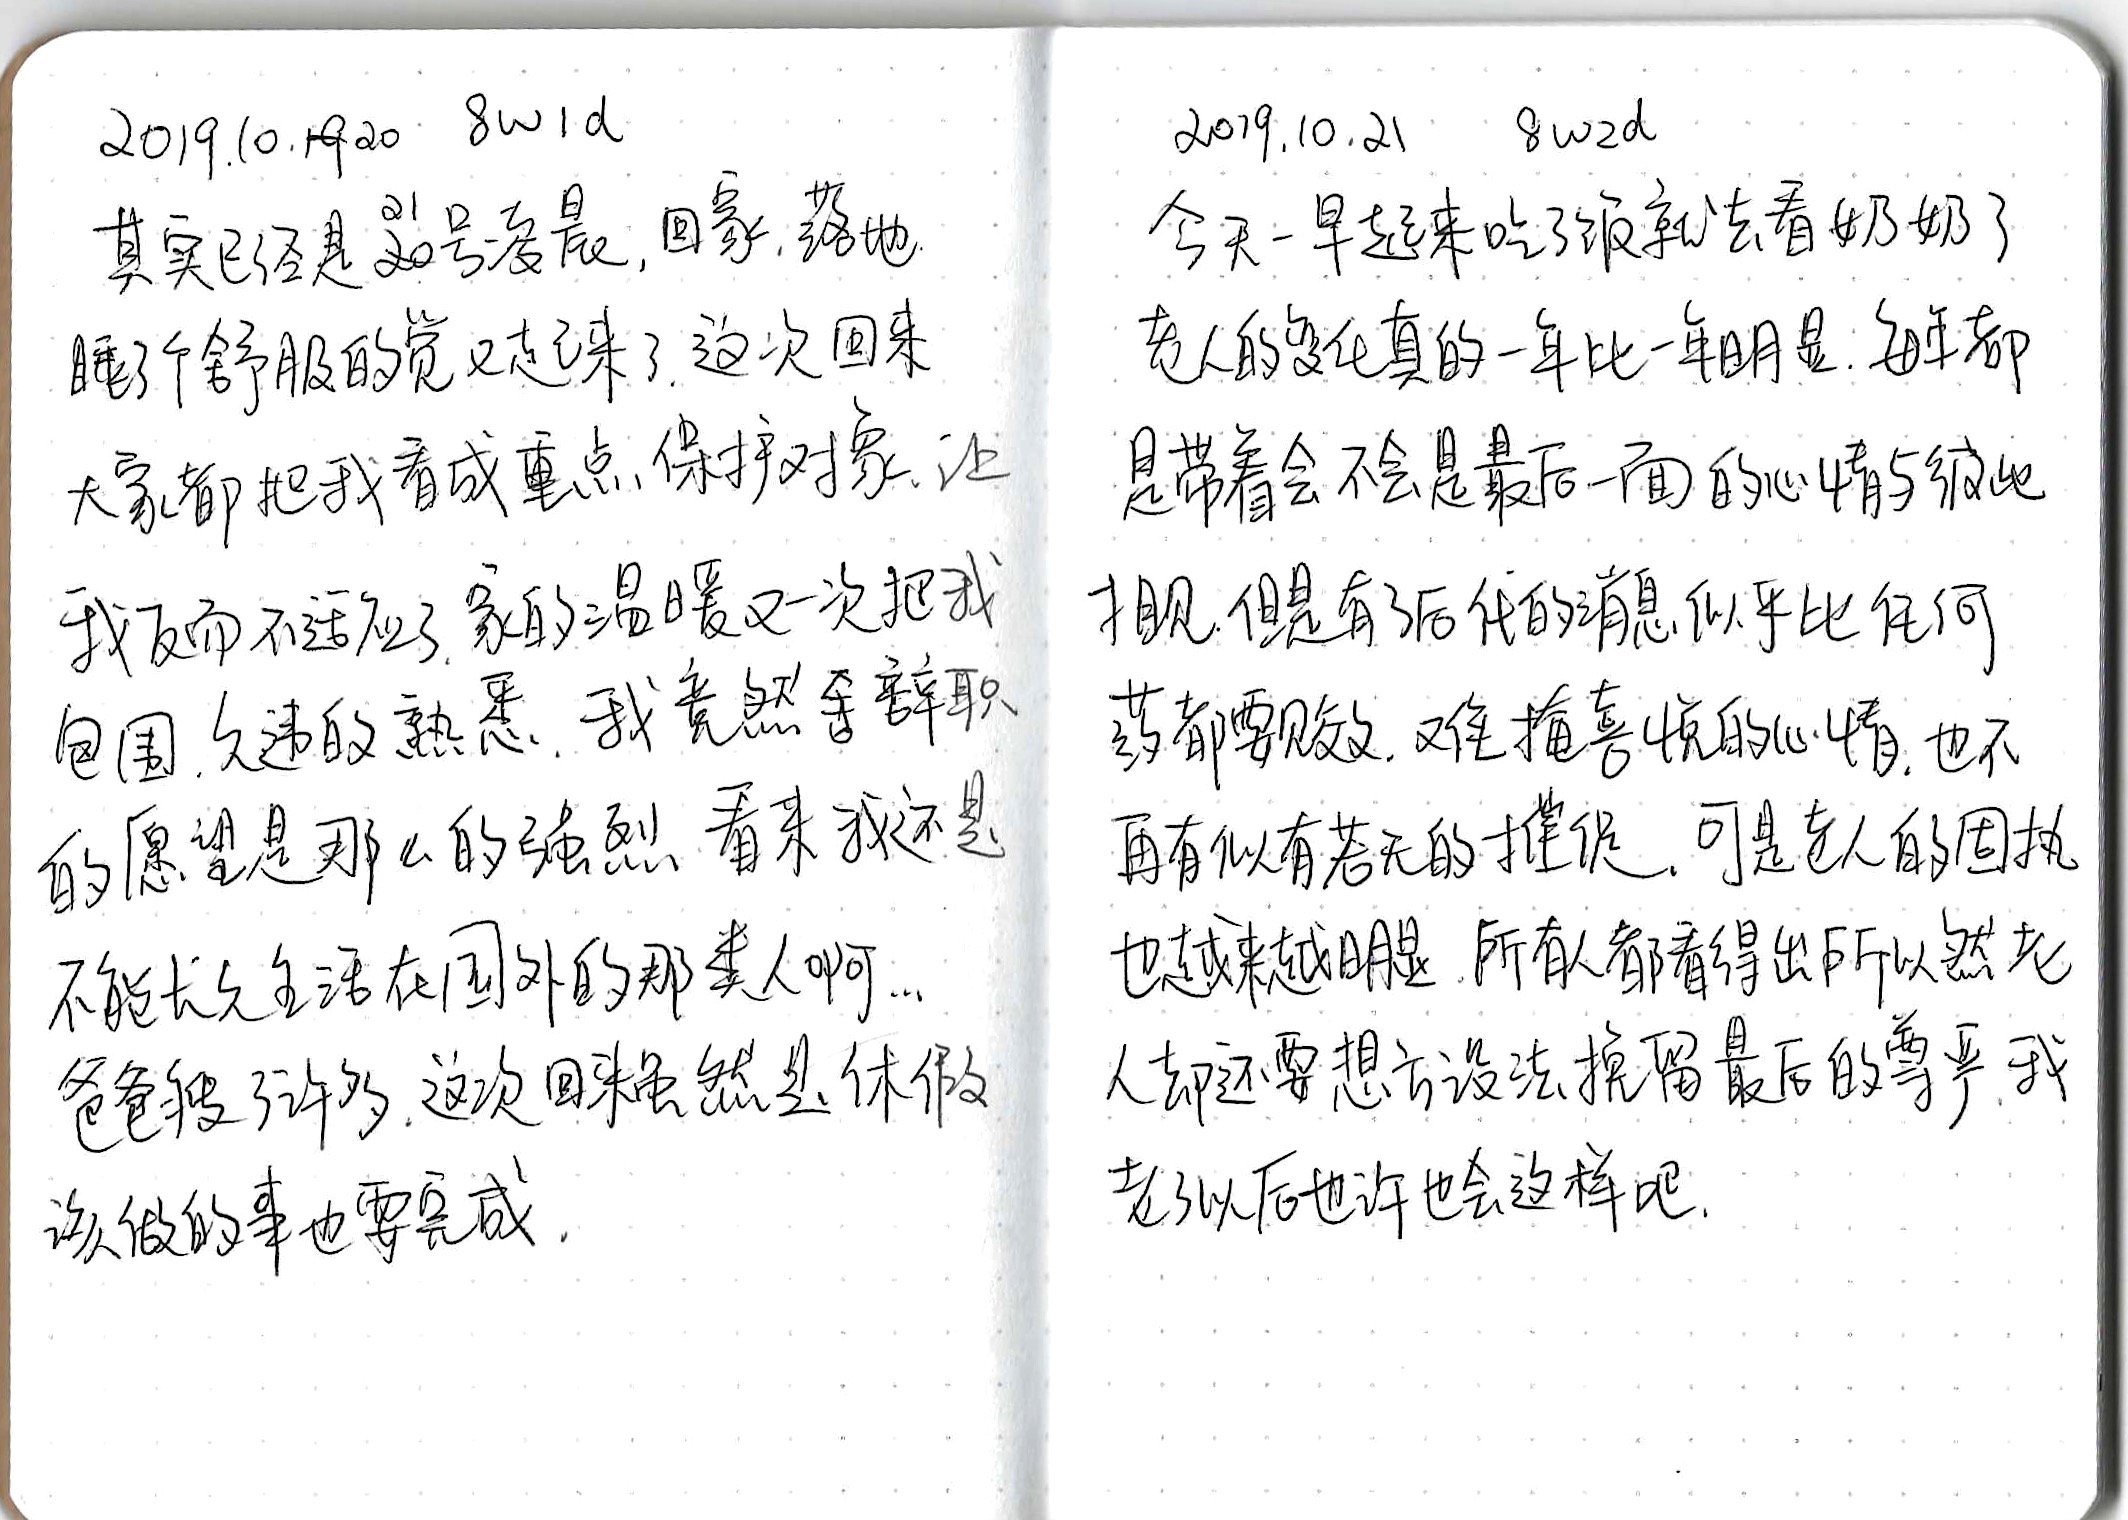 2019.10.20 8w1d
其实已经是21号凌晨,回家,落地
睡了个舒服的觉又起来了.这次回来
大家都把我看成重点保护对象,让
我反而不适应了.家的温暖又一次把我
包围,久违的熟悉.我竟然辞职
的愿望是那么的强烈,看来我还是
不能长久生活在国外的那类人啊...
爸爸瘦了许多.这次回来虽然是休假
该做的事也要完成.
2019.10.21 8w2d
今天一早起来吃了饭就去看奶奶了
老人的变化真的一年比一年明显.每年都
是带着会不会是最后一面的心情与彼此
相见.但是有了后代的消息似乎比任何
药都要见效.难掩喜悦的心情,也不
再有似有若无的催促.可是老人的固执
也越来越明显.所有人都看得出所以然老
人却还要想方设法挽留最后的尊严.我
老了以后也许也会这样吧.